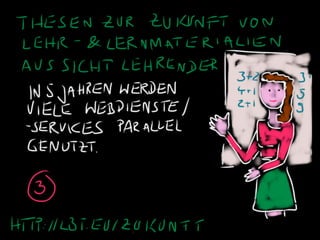 THESEN ZUR ZUKUNFT VON
LEHR- & LERNMATERIALIEN
AUS SICHT LEHRENDER
IN 5 JAHREN WERDEN
VIELE WEBDIENSTE/
-SERVICES PARALLEL
GENUTZT.
3+2 3
4+1 5
2+1 9
3
HTTP://L3T.EU/ZUKUNFT